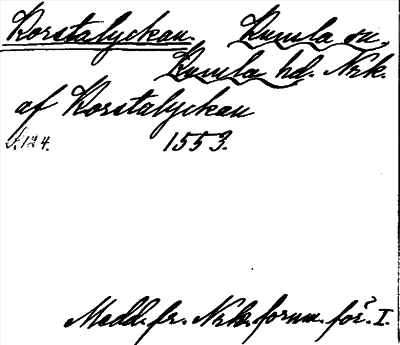 Korstalyckan. Kumla sn,
Kumla hd. Nrk.
af Korstalyckan
S. 124. 1553.
Medd. fr. Nrk. fornm. för. I.